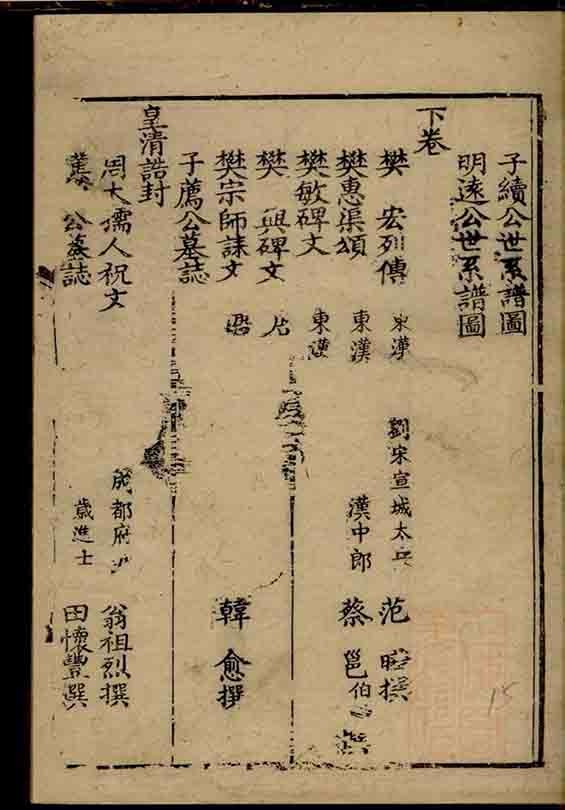 子續公世系譜圖
明遠公世系譜圖
下卷
樊宏列傳 東漢 劉宋宣城太 范 撰
樊惠渠頌 東漢 漢中郎 蔡邕伯
樊敏碑文 東漢
樊 興碑文
樊宗師誄文 韓愈撰
子薦公墓誌
皇清誥封
周大孺人祝文 成都府 翁祖烈撰
公墓誌 歲進士 田懷豐撰
15